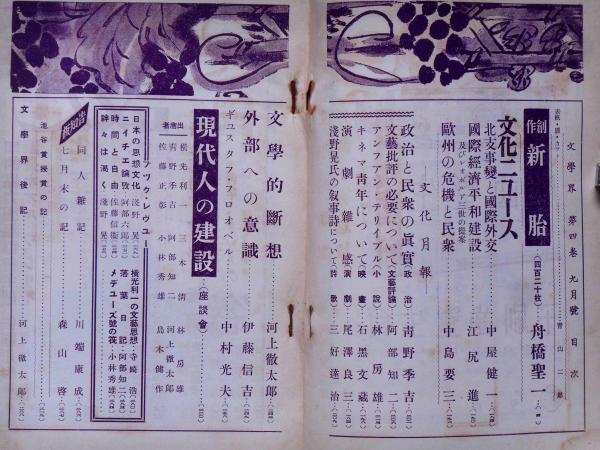 文學界 第四卷 九月號 目次
表紙・扉・カット……靑山二郎
創作 新胎(四百二十枚)……舟橋聖一
文化ニュース
北支事變と國際外交……中屋健一
國際經濟平和建設……江尻進
歐州の危機と民衆……中島要三
――文化月報――
政治と民衆の眞實(政治)……靑野季吉
文藝批評の必要について(文藝評論)……阿部知二
アンファン・テリイブル(小說)……林房雄
キネマ靑年について(映畫)……石黑文藏
演劇雜感(演劇)……尾澤良三
淺野晃氏の敍事詩について(詩歌)……三好達治
文學的斷想……河上徹太郎
外部への意識……伊藤信吉
ギユスタフ・フロオベル……中村光夫
現代人の建設(座談會)
出席者
橫光利一 三木淸 林房雄
靑野季吉 阿部知二 河上徹太郎
佐藤正彰 小林秀雄 島木健作
ブック・レヴュー
日本の思想文化(淺野晃)
ニイチエ論攷(阿部六郎)
時間と自由(佐藤信衞)
神々は渴く(淺野晃)
橫光利一の文藝思想・寺崎浩
落葉日記(阿部知二)
メデューズ號の筏・小林秀雄
同人雜記……川端康成
七月末の記……森山啓
池谷賞授賞の記
文學界後記……河上徹太郎